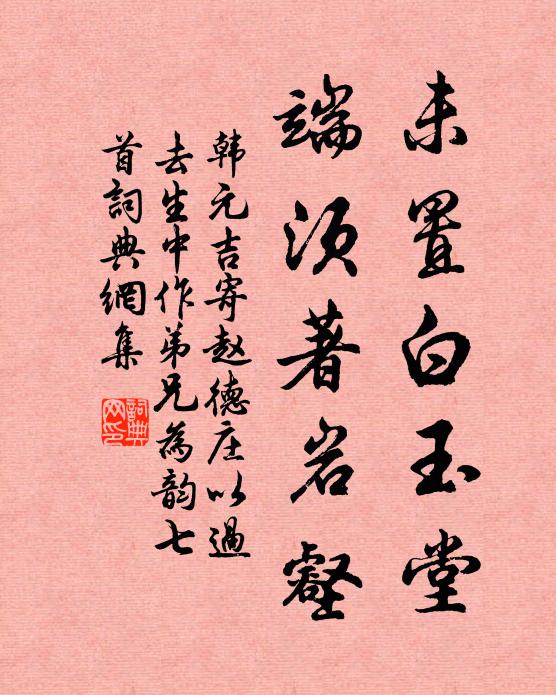 未置白玉堂
端须著岩壑
韩元吉寄赵德庄以過
去生中作弟兄為韵七
首詞典網集
詞典
网印